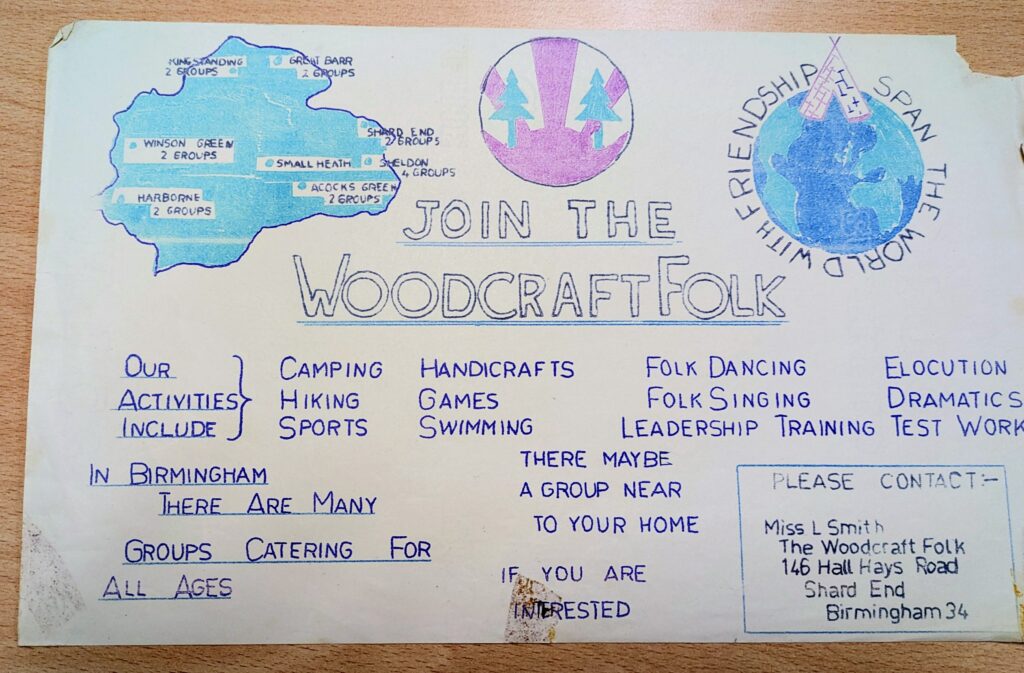 KINGSTANDING
2 GROUPS
GREAT BARR
2 GROUPS
SHARD END
2 GROUPS
WINSON GREEN
2 GROUPS
SMALL HEATH
SHELDON
4 GROUPS
ACOCKS GREEN
2 GROUPS
HARBORNE
2 GROUPS
SPAN THE WORLD WITH FRIENDSHIP
JOIN THE
WOODCRAFT FOLK
OUR
ACTIVITIES
INCLUDE
CAMPING HANDICRAFTS FOLK DANCING ELOCUTION
HIKING GAMES FOLK SINGING DRAMATICS
SPORTS SWIMMING LEADERSHIP TRAINING TEST WORK
IN BIRMINGHAM
THERE ARE MANY
GROUPS CATERING FOR
ALL AGES
THERE MAYBE
A GROUP NEAR
TO YOUR HOME
IF YOU ARE
INTERESTED
PLEASE CONTACT:-
Miss L Smith
The Woodcraft Folk
146 Hall Hays Road
Shard End
Birmingham 34